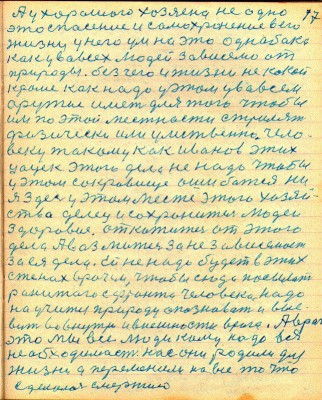 А у хорошого хозяена не одно 17
это спасение и самохронение в его
жизни у него ум на это одна бака
как у вавсех людей зависемо от
природы. без чего и жизни не какой
кроме как надо у этом у вавсем
оружие имет для того чтобы
им по этой местности стрилят
физически или умственно чело-
веку такому как Иванов этих
этого дела не надо чтобы
у этом сокравище ошибатся ни
я здесь у этом месте этого хозяй-
ства делец и сохранитель людей
здоровие. откажитесь от этого
дела А возмитеся за не зависемост
за ся дела. Ей не надо будет в этих
стенах врачом, чтобы сюда посылат
ранитого с фронта человека, надо
научит природу опознават и выя-
вит во внутри и внешности врага. А враг
это мы все люди кому надо вся
необходимаст. нас они родили для
жизни а переменили на все то что
сделалос смертию